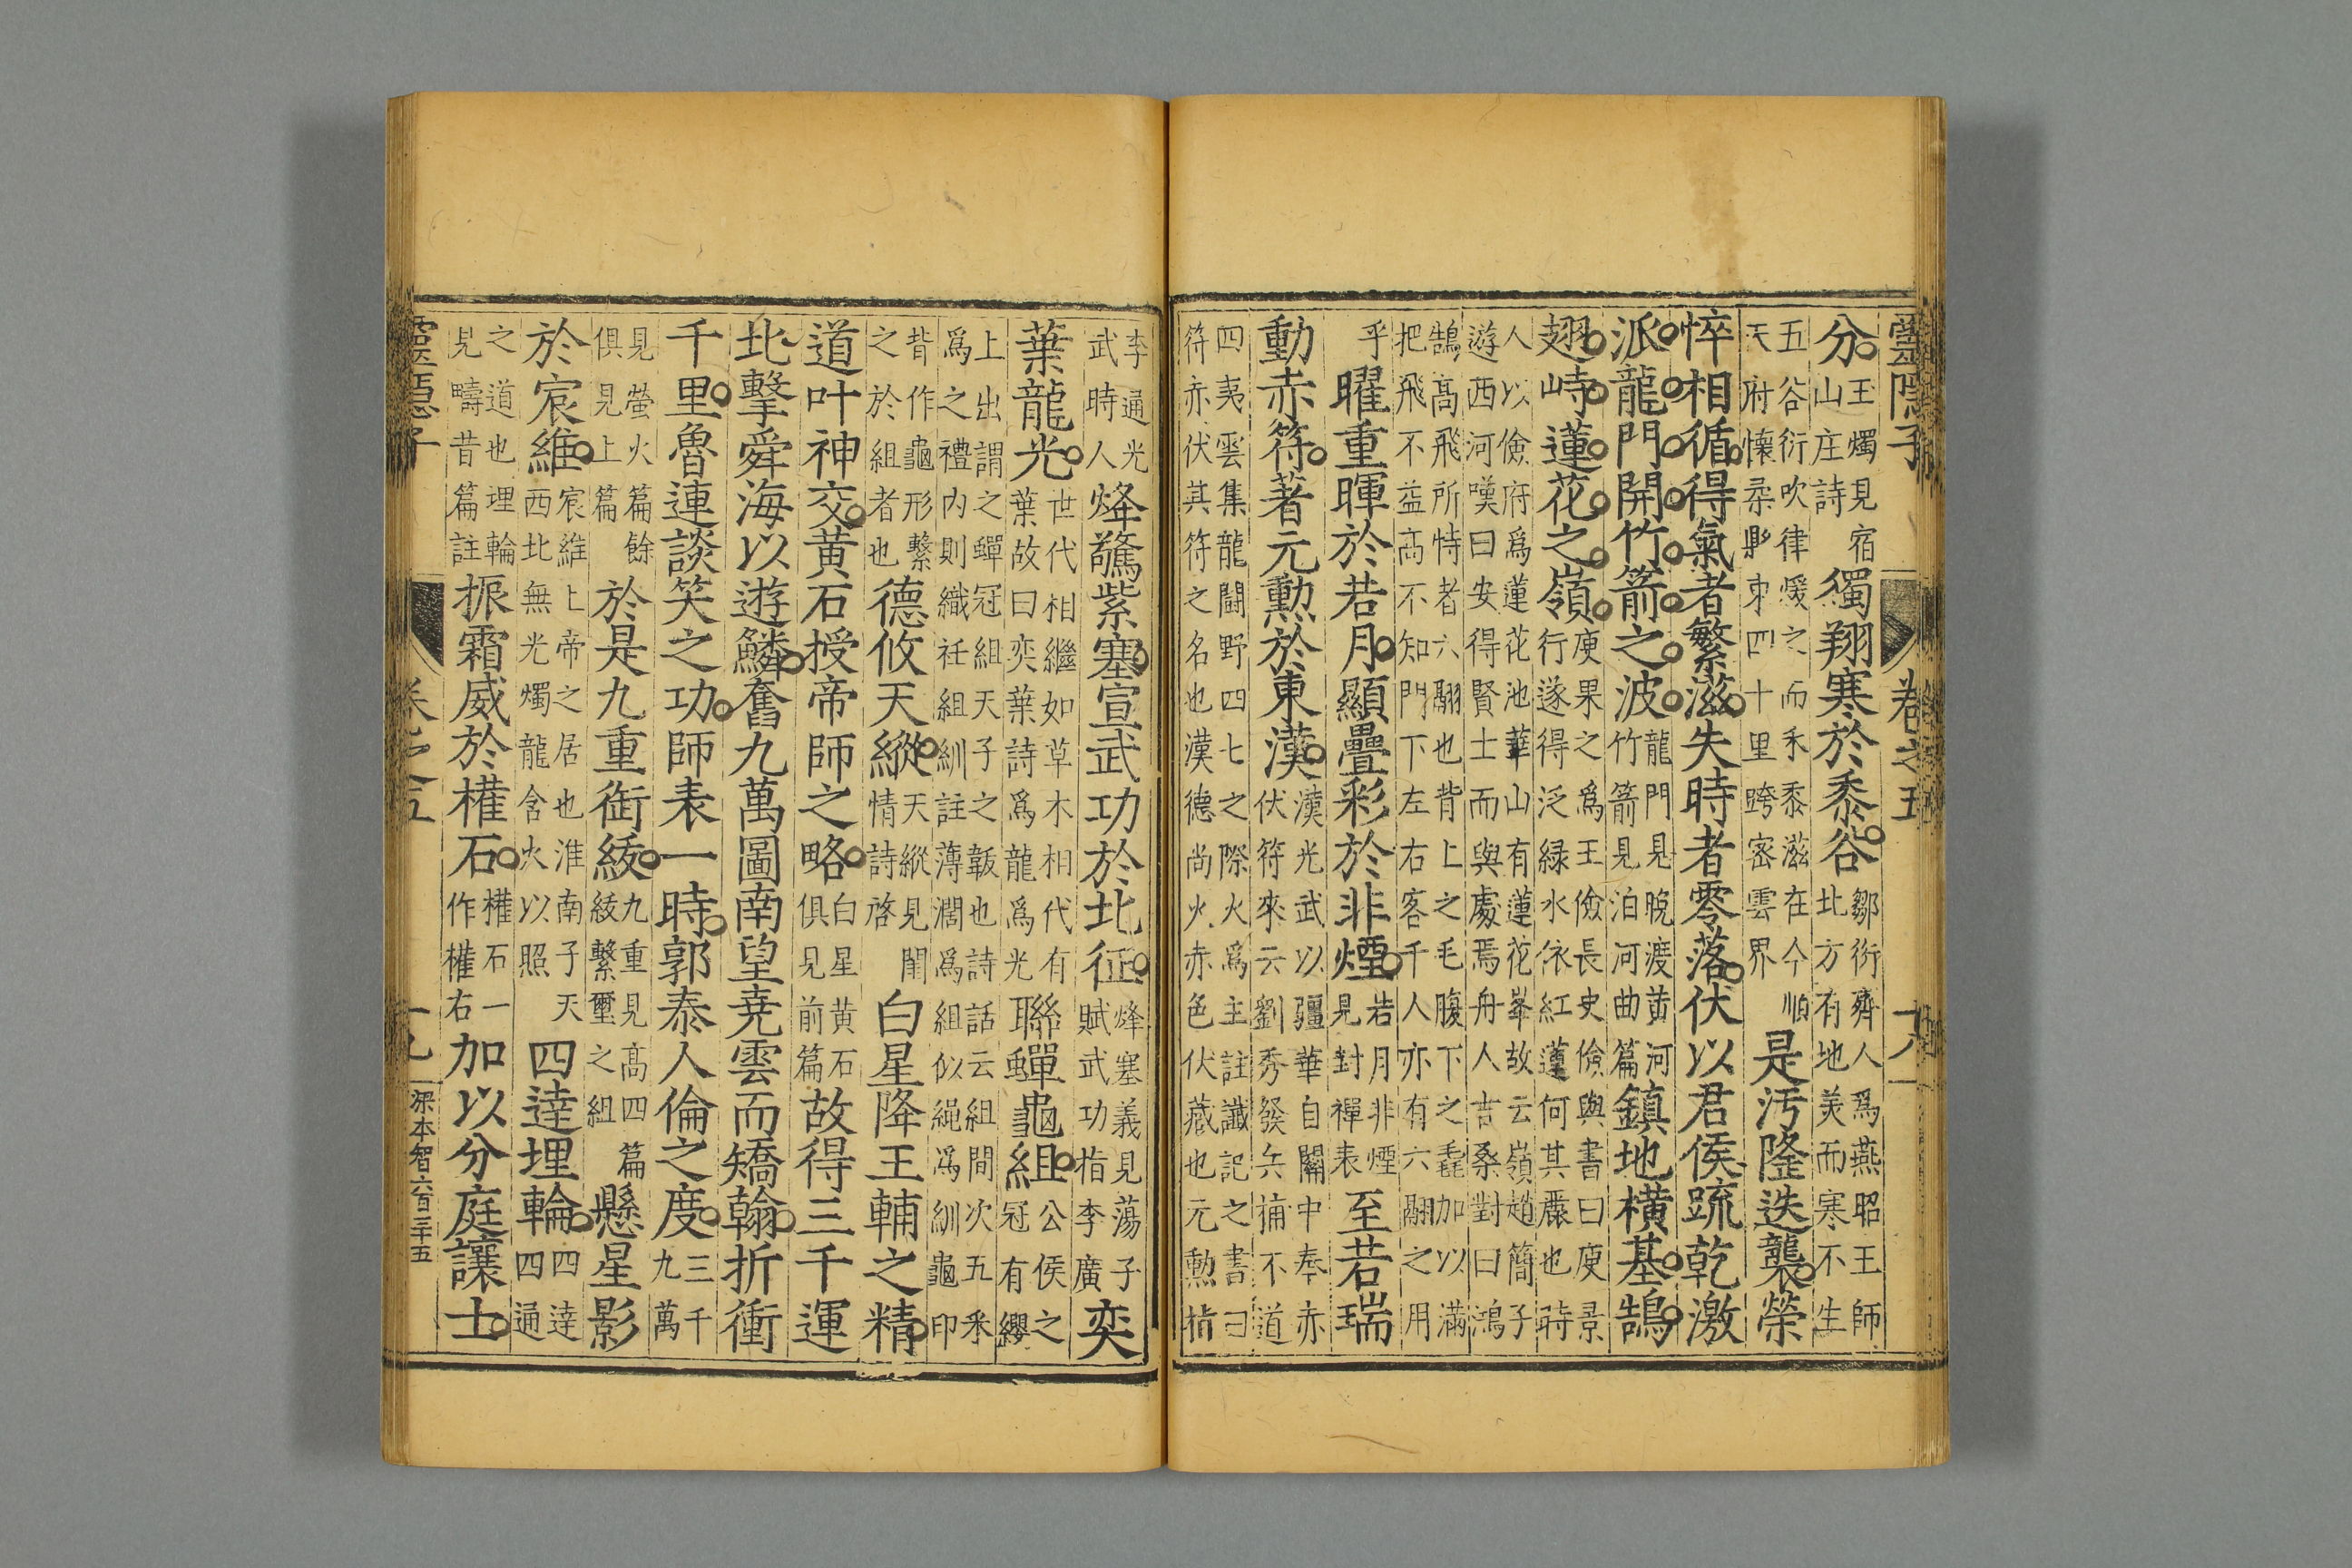 靈隱子 卷之五 十八
分玉燭見宿山庄詩獨翔寒於黍谷鄒衍齊人為燕昭王師北方有地美而寒不生
五谷衍吹律煖之而禾黍滋在今順天府懷柔縣東四十里跨密雲界是汚隆迭襲榮
悴相循得氣者繁滋失時者零落伏以君侯䟽乾激
派龍門開竹箭之波龍門見晚渡黄河竹箭見泊河曲篇鎮地横基鵠
翅峙蓮花之嶺庾果之為王儉長史儉與書曰庾景行遂得泛緑水依紅蓮何其麗也時
人以儉府為蓮花池華山有蓮花峯故云嶺趙簡子遊西河嘆曰安得賢士而與處焉舟人吉桑對曰鴻
鵠高飛所恃者六翮也背上之毛腹下之毳加以滿把飛不益高不知門下左右客千人亦有六翮之用
乎曜重暉於若月顯疊彩於非煙若月非煙見對禪表至若瑞
動赤符著元勲於東漢漢光武以彊華自關中奉赤伏符來云劉秀發兵捕不道
四夷雲集龍鬪野四七之際火為主註讖記之書曰符赤伏其符之名也漢德尚火赤色伏藏也元勲指
李通光武時人烽驚紫塞宣武功於北征烽塞義見蕩子賦武功指李廣奕
葉龍光世代相繼如草木相代有葉故曰奕葉詩為龍為光聯蟬龜組公侯之冠有纓
上出謂之蟬冠組天子之韍也詩話云組間次五采為之禮内則織衽組紃註薄濶為組似繩為紃龜印
背作龜形繫之於組者也德攸天縱天縱見閨情詩啓白星降王輔之精
道叶神交黄石授帝師之略白星黄石俱見前篇故得三千運
北擊舜海以遊鱗奮九萬圖南望尭雲而矯翰折衝
千里魯連談笑之功師表一時郭泰人倫之度三千九萬
見螢火篇餘俱見上篇於是九重銜綬九重見高四篇綬繫璽之組懸星影
於宸維宸維上帝之居也淮南子天西北無光燭龍含火以照四達埋輪四達四通
之道也埋輪見疇昔篇註振霜威於權石權石一作權右加以分庭讓士
靈隱子 卷之五 十九 梁本智六百二十五